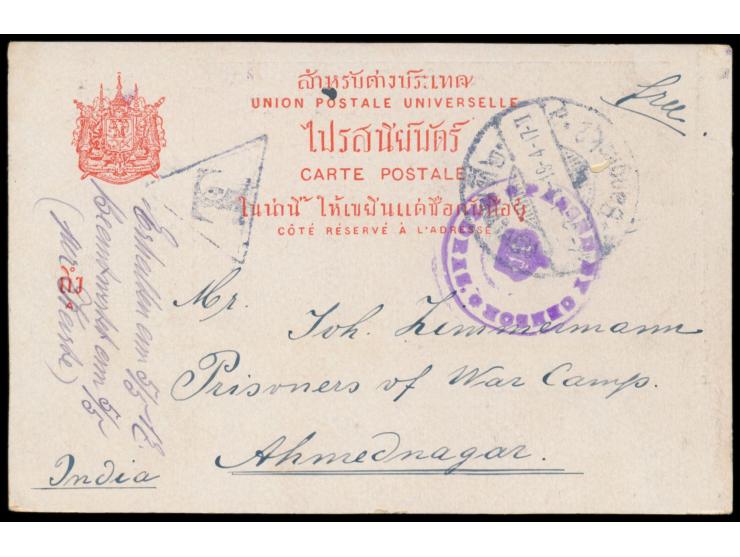 สำหรับต่างประเทศ
UNION POSTALE UNIVERSELLE
ไปรสนียบัตร์
CARTE POSTALE
ในน่านี้ ให้เขียนแต่ชื่อคนที่อยู่
CÔTÉ RÉSERVÉ À L'ADRESSE
free
T
BANGKOK 2
19-4-17
PASSED BY CENSOR
Erhalten am
Beantwortet am
Mr. Joh. Zimmermann
Prisoners of War Camp.
Ahmednagar.
India